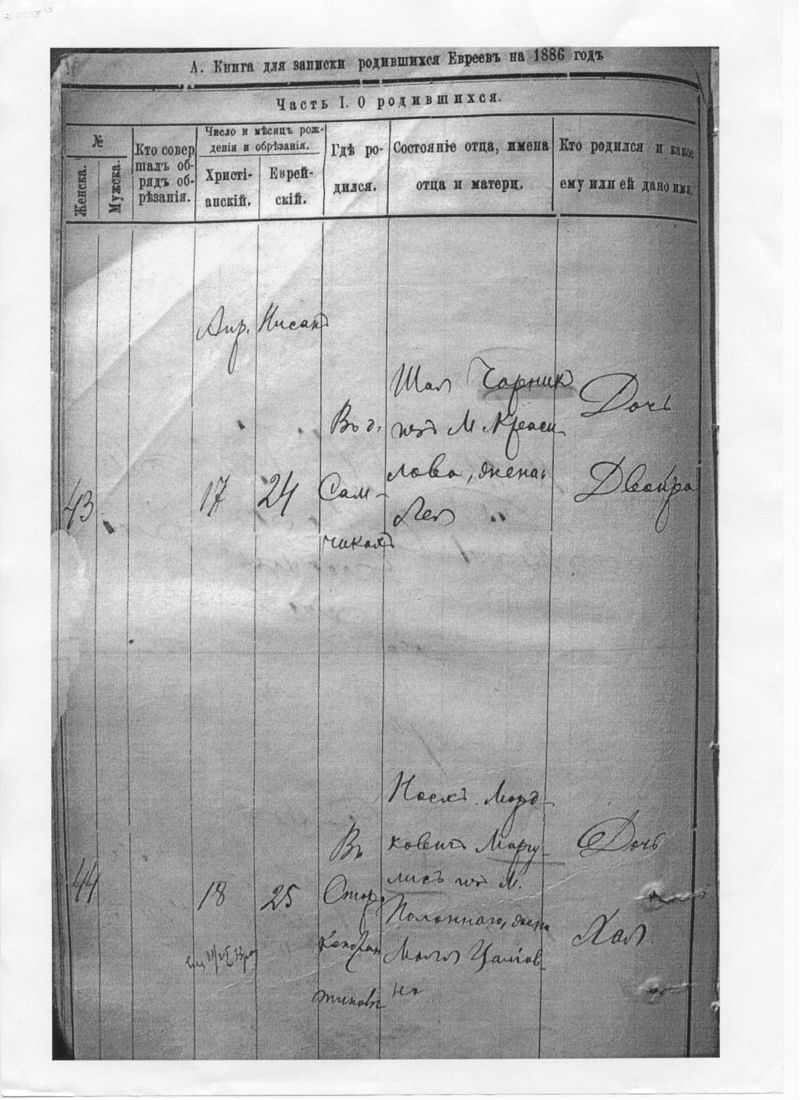 А. Книга для записки родившихся Евреевъ на 1886 годъ
Часть I. О родившихся.
№
Женска.
Мужска.
Кто совер
шалъ об-
рядъ об-
рѣзанія.
Число и мѣсяцъ рож-
денія и обрѣзанія.
Христі-
анскій.
Еврей-
скій.
Гдѣ ро-
дился.
Состояніе отца, имена
отца и матери.
Кто родился и какое
ему или ей дано имя.
Апр. Нисанъ
43
17
24
Въ д.
Сам-
чикахъ
Шая Чарник
изъ М. Краси
лова, жена
Лея
Дочь
Двойра
44
18
25
Въ
Стар.
Константиновѣ
Иосхъ Морд-
ковичъ Мару-
лисъ изъ М.
Полоннаго, жена
Малля
на
Дочь
Хая